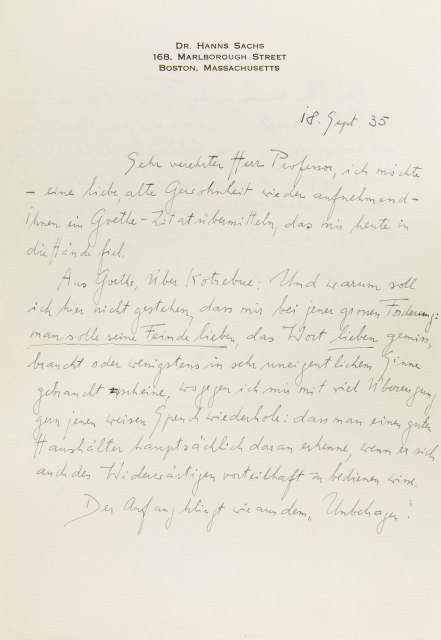 DR. HANNS SACHS
168, MARLBOROUGH STREET
BOSTON, MASSACHUSETTS
18. Sept. 35
Sehr verehrter Herr Professor, ich möchte
– eine liebe, alte Gewohnheit wieder aufnehmend –
Ihnen ein Goethe-Zitat übermitteln, das mir heute in
die Hände fiel.
Aus Goethe, über Kotzebue: Und warum soll
ich hier nicht gestehen, dass mir bei jener grossen Foderung:
man solle seine Feinde lieben, das Wort lieben gemiss,
braucht oder wenigstens in sehr uneigentlichem Sinne
gebraucht scheine, wogegen ich mir mit viel Überzeugung
gern jenen weisen Spruch wiederhole: dass man einen guten
Haushälter hauptsächlich daran erkenne, wenn er sich
auch des Widerwärtigen vorteilhaft zu bedienen wisse.
Der Anfang klingt wie aus dem „Unbehagen".